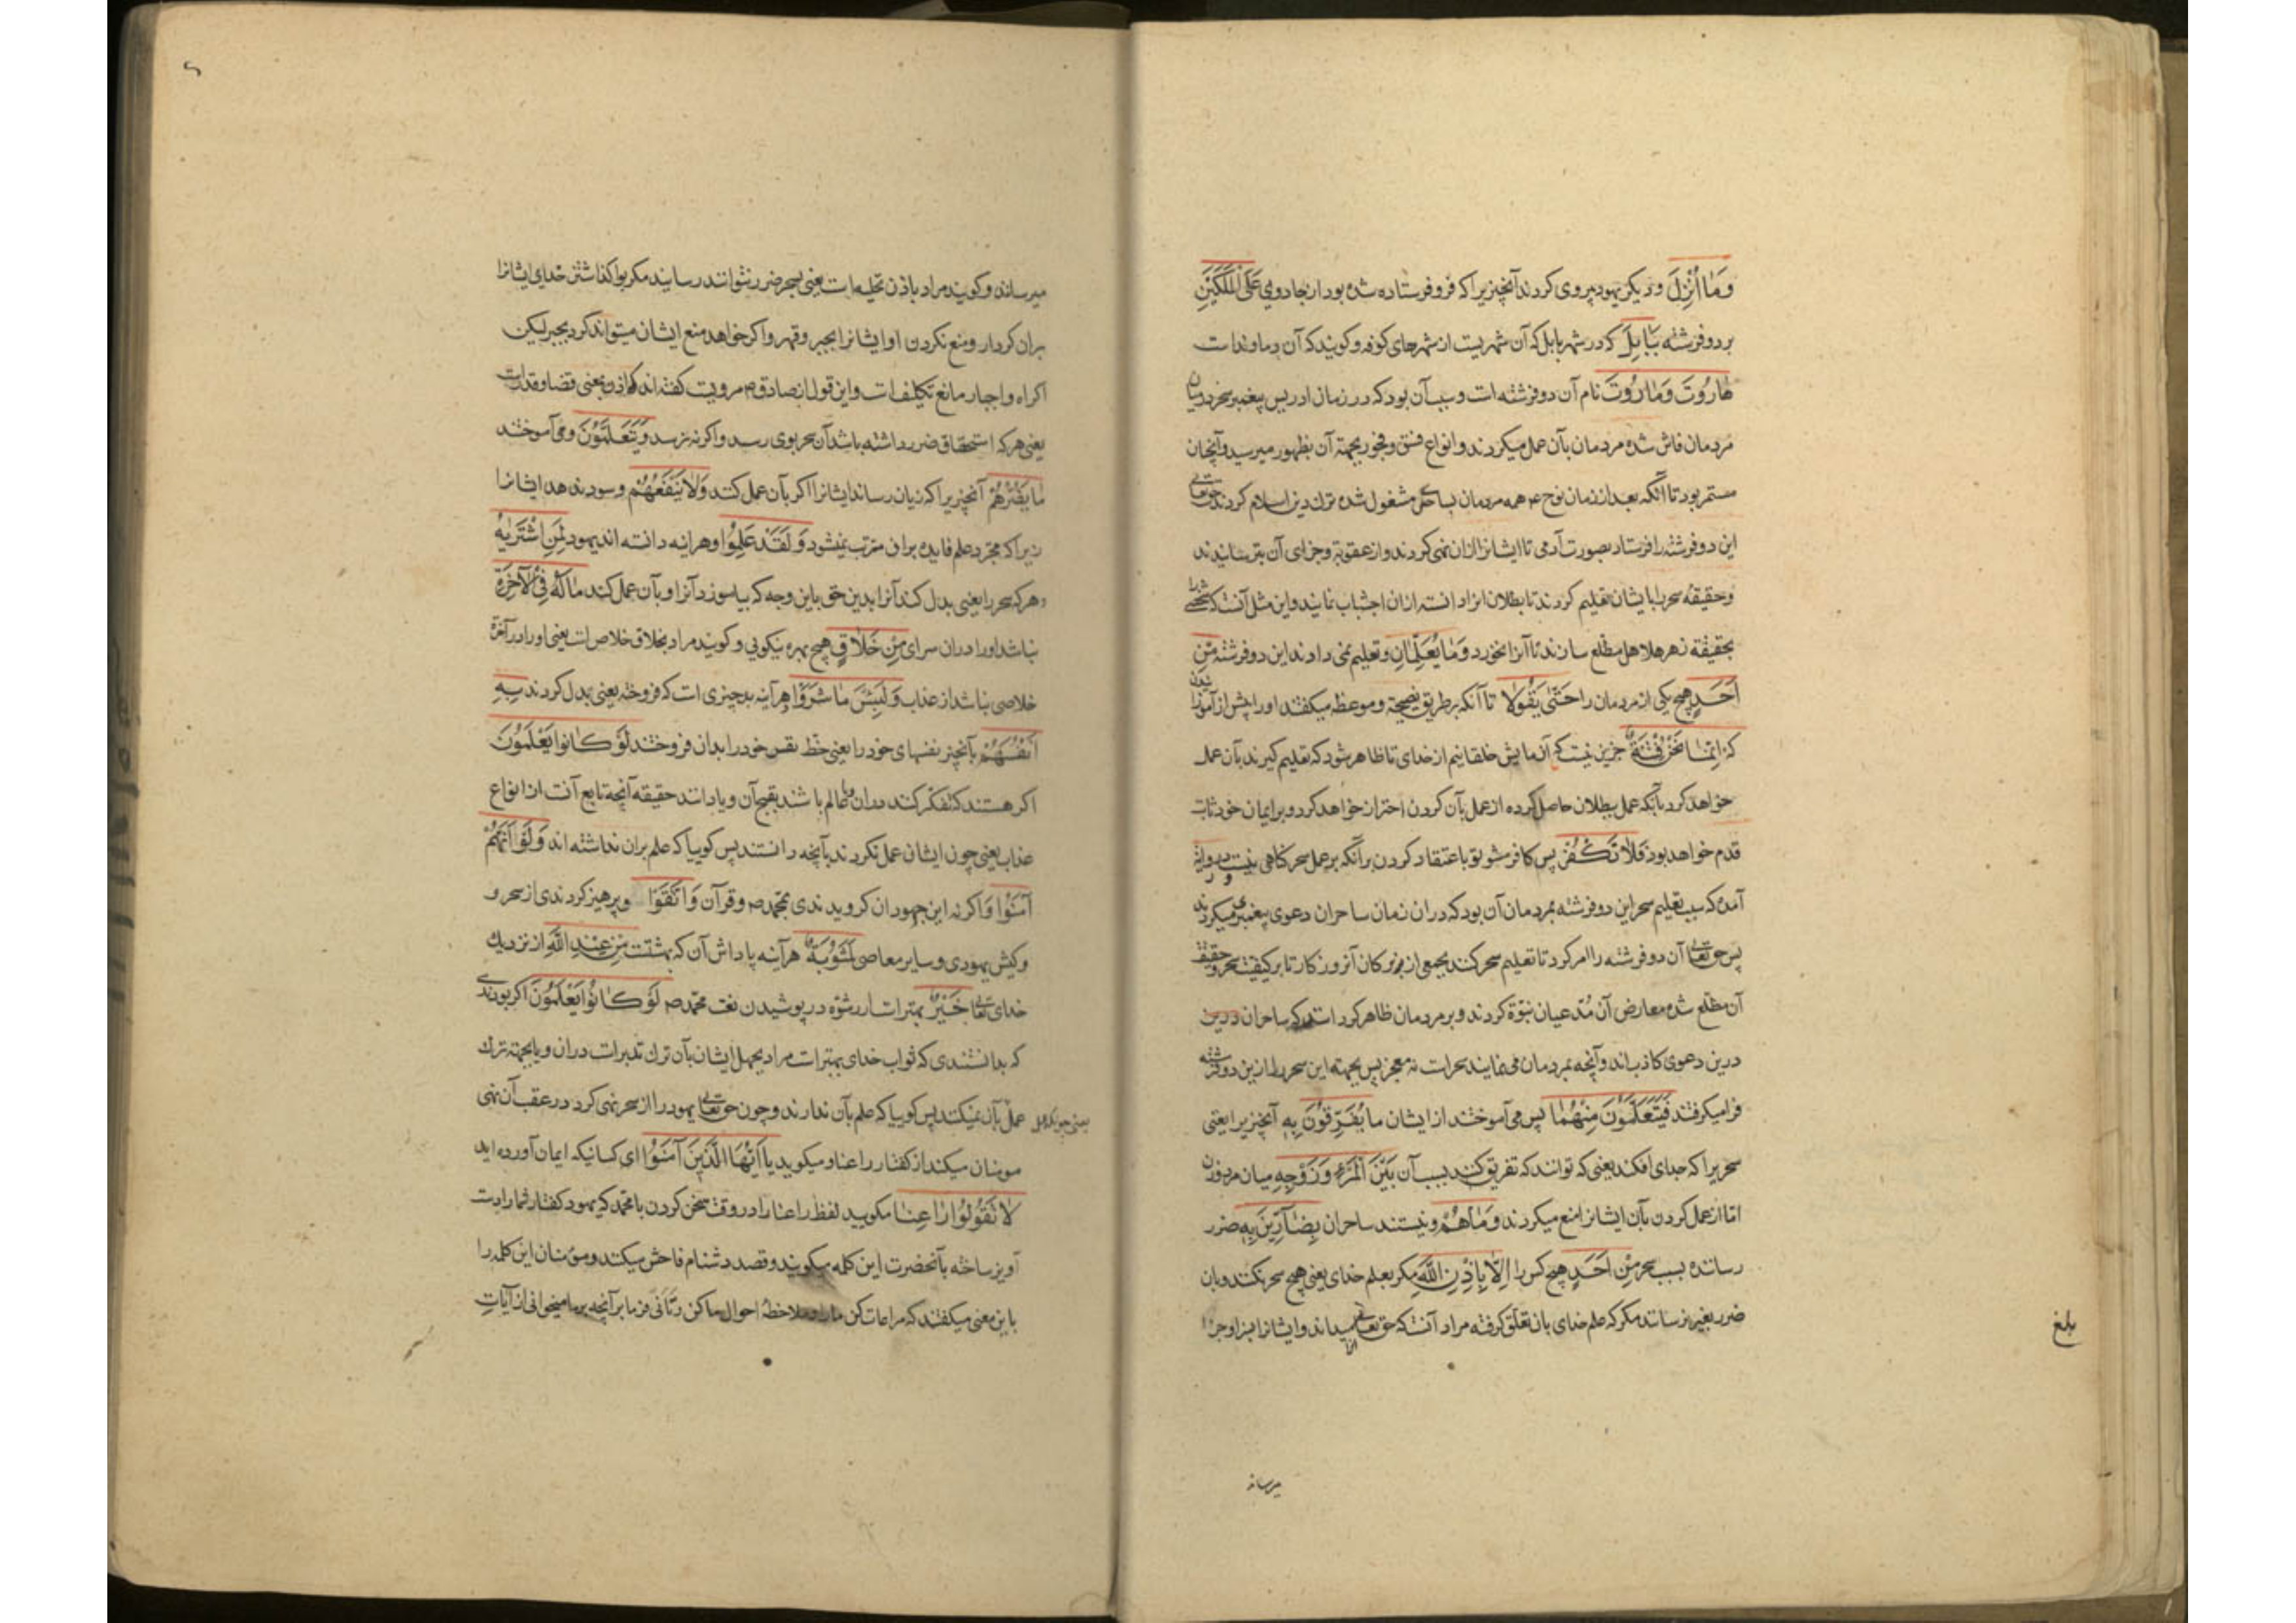 وَمَا اُنْزِلَ و دیکر یهود پیروی کردند آنچیزیرا که فرو فرستاده شده بود از جادویی عَلَی الْمَلَکَیْنِ
بر دو فرشته بِبَابِلَ که در شهر بابل که آن شهریست از شهرهای کوفه و کویند که آن دماوند است
هَارُوتَ وَمَارُوتَ نام آن دو فرشته است و سبب آن بود که در زمان ادریس پیغمبر سحر در میان
مردمان فاش شده مردمان بآن عمل میکردند و انواع فسق و فجور بجهة آن بظهور میرسید و آنچنان
مستمر بود تا آنکه بعد از زمان نوح ع همه مردمان بساحری مشغول شده ترک دین اسلام کردند حق تعالی
این دو فرشته را فرستاد بصورت آدمی تا ایشانرا ازان نهی کردند و از عقوبة و جزای آن بترسانیدند
و حقیقه سحر را بایشان تعلیم کردند تا بطلان انرا دانسته ازان اجتناب نمایند و این مثل آنست که شخصی را
بحقیقة زهر هلاهل مطلع سازند تا آنرا نخورد وَمَا یُعَلِّمَانِ و تعلیم نمی دادند این دو فرشته مِنْ
اَحَدٍ هیچ یکی از مردمان را حَتّٰی یَقُولَا تا آنکه بر طریق نصیحة و موعظه میکفتند او را پیش از آموزانیدن
که اِنَّمَا نَحْنُ فِتْنَةٌ جزین نیست که آزمایش خلقانیم از خدای تا ظاهر شود که تعلیم کیرند بآن عمل
خواهد کرد یا آنکه عمل ببطلان حاصل کرده از عمل بآن کردن احتراز خواهد کرد و بر ایمان خود ثابت
قدم خواهد بود فَلَا تَکْفُرْ پس کافر مشو تو باعتقاد کردن بر آنکه بر عمل سحر کناهی نیست و در روایة
آمده که سبب تعلیم سحر این دو فرشته بمردمان آن بود که دران زمان ساحران دعوی پیغمبری میکردند
پس حق تعالی آن دو فرشته را امر کرد تا تعلیم سحر کنند بجمعی از بزرکان آنروزکار تا بر کیفیت سحر و حقیقة
آن مطلع شده معارض آن مُدّعیان نبوّة کردند و بر مردمان ظاهر کردانند که ساحران درین
درین دعوی کاذب اند و آنچه بمردمان می نمایند سحرست نه معجز پس بجهته این سحر را ازین دو فرشته
فرا میکرفتند فَیَتَعَلَّمُونَ مِنْهُمَا پس می آموختند از ایشان مَا یُفَرِّقُونَ بِهِ آنچیزیرا یعنی
سحریرا که جدای افکند یعنی که توانند که تفریق کنند بسبب آن بَیْنَ الْمَرْءِ وَزَوْجِهِ میان مرد و زن
اما از عمل کردن بآن ایشانرا منع میکردند وَمَا هُمْ و نیستند ساحران بِضَارِّینَ بِهِ ضرر
رسانده بسبب سحر مِنْ اَحَدٍ هیچ کس را اِلَّا بِاِذْنِ اللّٰهِ مکر بعلم خدای یعنی هیچ سحر نکنند و بان
ضرر بغیر نرسانند مکر که علم خدای بان تعلق کرفته مراد آنست که حق تعالی آنرا میداند و ایشانرا بسزا و جزا
میرساند
بلغ
میرساند و کویند مراد باذن تخلیه است یعنی بسحر ضرر نتوانند رسانید مکر بواکذاشتن خدای ایشانرا
بران کردار و منع نکردن او ایشانرا بجبر و قهر و اکر خواهد منع ایشان میتواند کرد بجبر لیکن
اکراه و اجبار مانع تکلیف است و این قول از صادق ع مرویست کفته اند که اذن بمعنی قضا و قدرست
یعنی هر که استحقاق ضرر داشته باشد آن سحر بوی رسد و اکر نه نرسد وَیَتَعَلَّمُونَ و می آموختند
مَا یَضُرُّهُمْ آنچیزیرا که زیان رساند ایشانرا اکر بآن عمل کنند وَلَا یَنْفَعُهُمْ و سود ندهد ایشانرا
زیرا که مجرّد علم فایده بران مترتب نمیشود وَلَقَدْ عَلِمُوا و هر اینه دانسته اند یهود لَمَنِ اشْتَرٰیهُ
هر که سحر را یعنی بدل کند آنرا بدین حق باین وجه که بیاموزد آنرا و بآن عمل کند مَا لَهُ فِی الْآخِرَةِ
نباشد او را دران سرای مِنْ خَلَاقٍ هیچ بهره نیکویی و کویند مراد بخلاق خلاص است یعنی او را در آخرة
خلاصی نباشد از عذاب وَلَبِئْسَ مَا شَرَوْا هر آینه بد چیزی است که فروختند یعنی بدل کردند بِهِ
اَنْفُسَهُمْ بآنچیز نفسهای خود را یعنی حظ نفس خود را بدان فروختند لَوْ کَانُوا یَعْلَمُونَ
اکر هستند که تفکر کنند دران و یا عالم باشند بقبح آن و یا دانند حقیقه آنچه تابع آنست از انواع
عذاب یعنی چون ایشان عمل نکردند بآنچه دانستند پس کوییا که علم بران نداشته اند وَلَوْ اَنَّهُمْ
آمَنُوا وَ اکر نه این جهودان کرویدندی بمحمد ص و قرآن وَاتَّقَوْا و پرهیز کردندی از سحر و
و کیش یهودی و سایر معاصی لَمَثُوبَةٌ هر آینه پاداش آن که بهشتست مِنْ عِنْدِ اللّٰهِ از نزدیک
خدای تعالی خَیْرٌ بهتر است از رشوه در پوشیدن نعت محمد ص لَوْ کَانُوا یَعْلَمُونَ اکر بودندی
که بدانستندی که ثواب خدای بهترست مراد بجهل ایشان بآن ترک تدبرست دران و یا بجهة ترک
عمل بآن نمیکنند پس کوییا که علم بآن ندارند و چون حق تعالی یهود را از سحر نهی کرد در عقب آن نهی
مومنان میکند از کفتار راعنا و میکوید یَا اَیُّهَا الَّذِینَ آمَنُوا ای کسانیکه ایمان آورده اید
لَا تَقُولُوا رَاعِنَا مکویید لفظ راعنا را در وقت سخن کردن با محمد که یهود کفتار شما را دست
آویز ساخته بآنحضرت این کلمه میکویند و قصد دشنام فاحش میکنند و مؤمنان این کلمه را
باین معنی میکفتند که مراعات کن ما را و ملاحظه احوال ما کن و تأنی فرما بر آنچه بر ما میخوانی از آیات